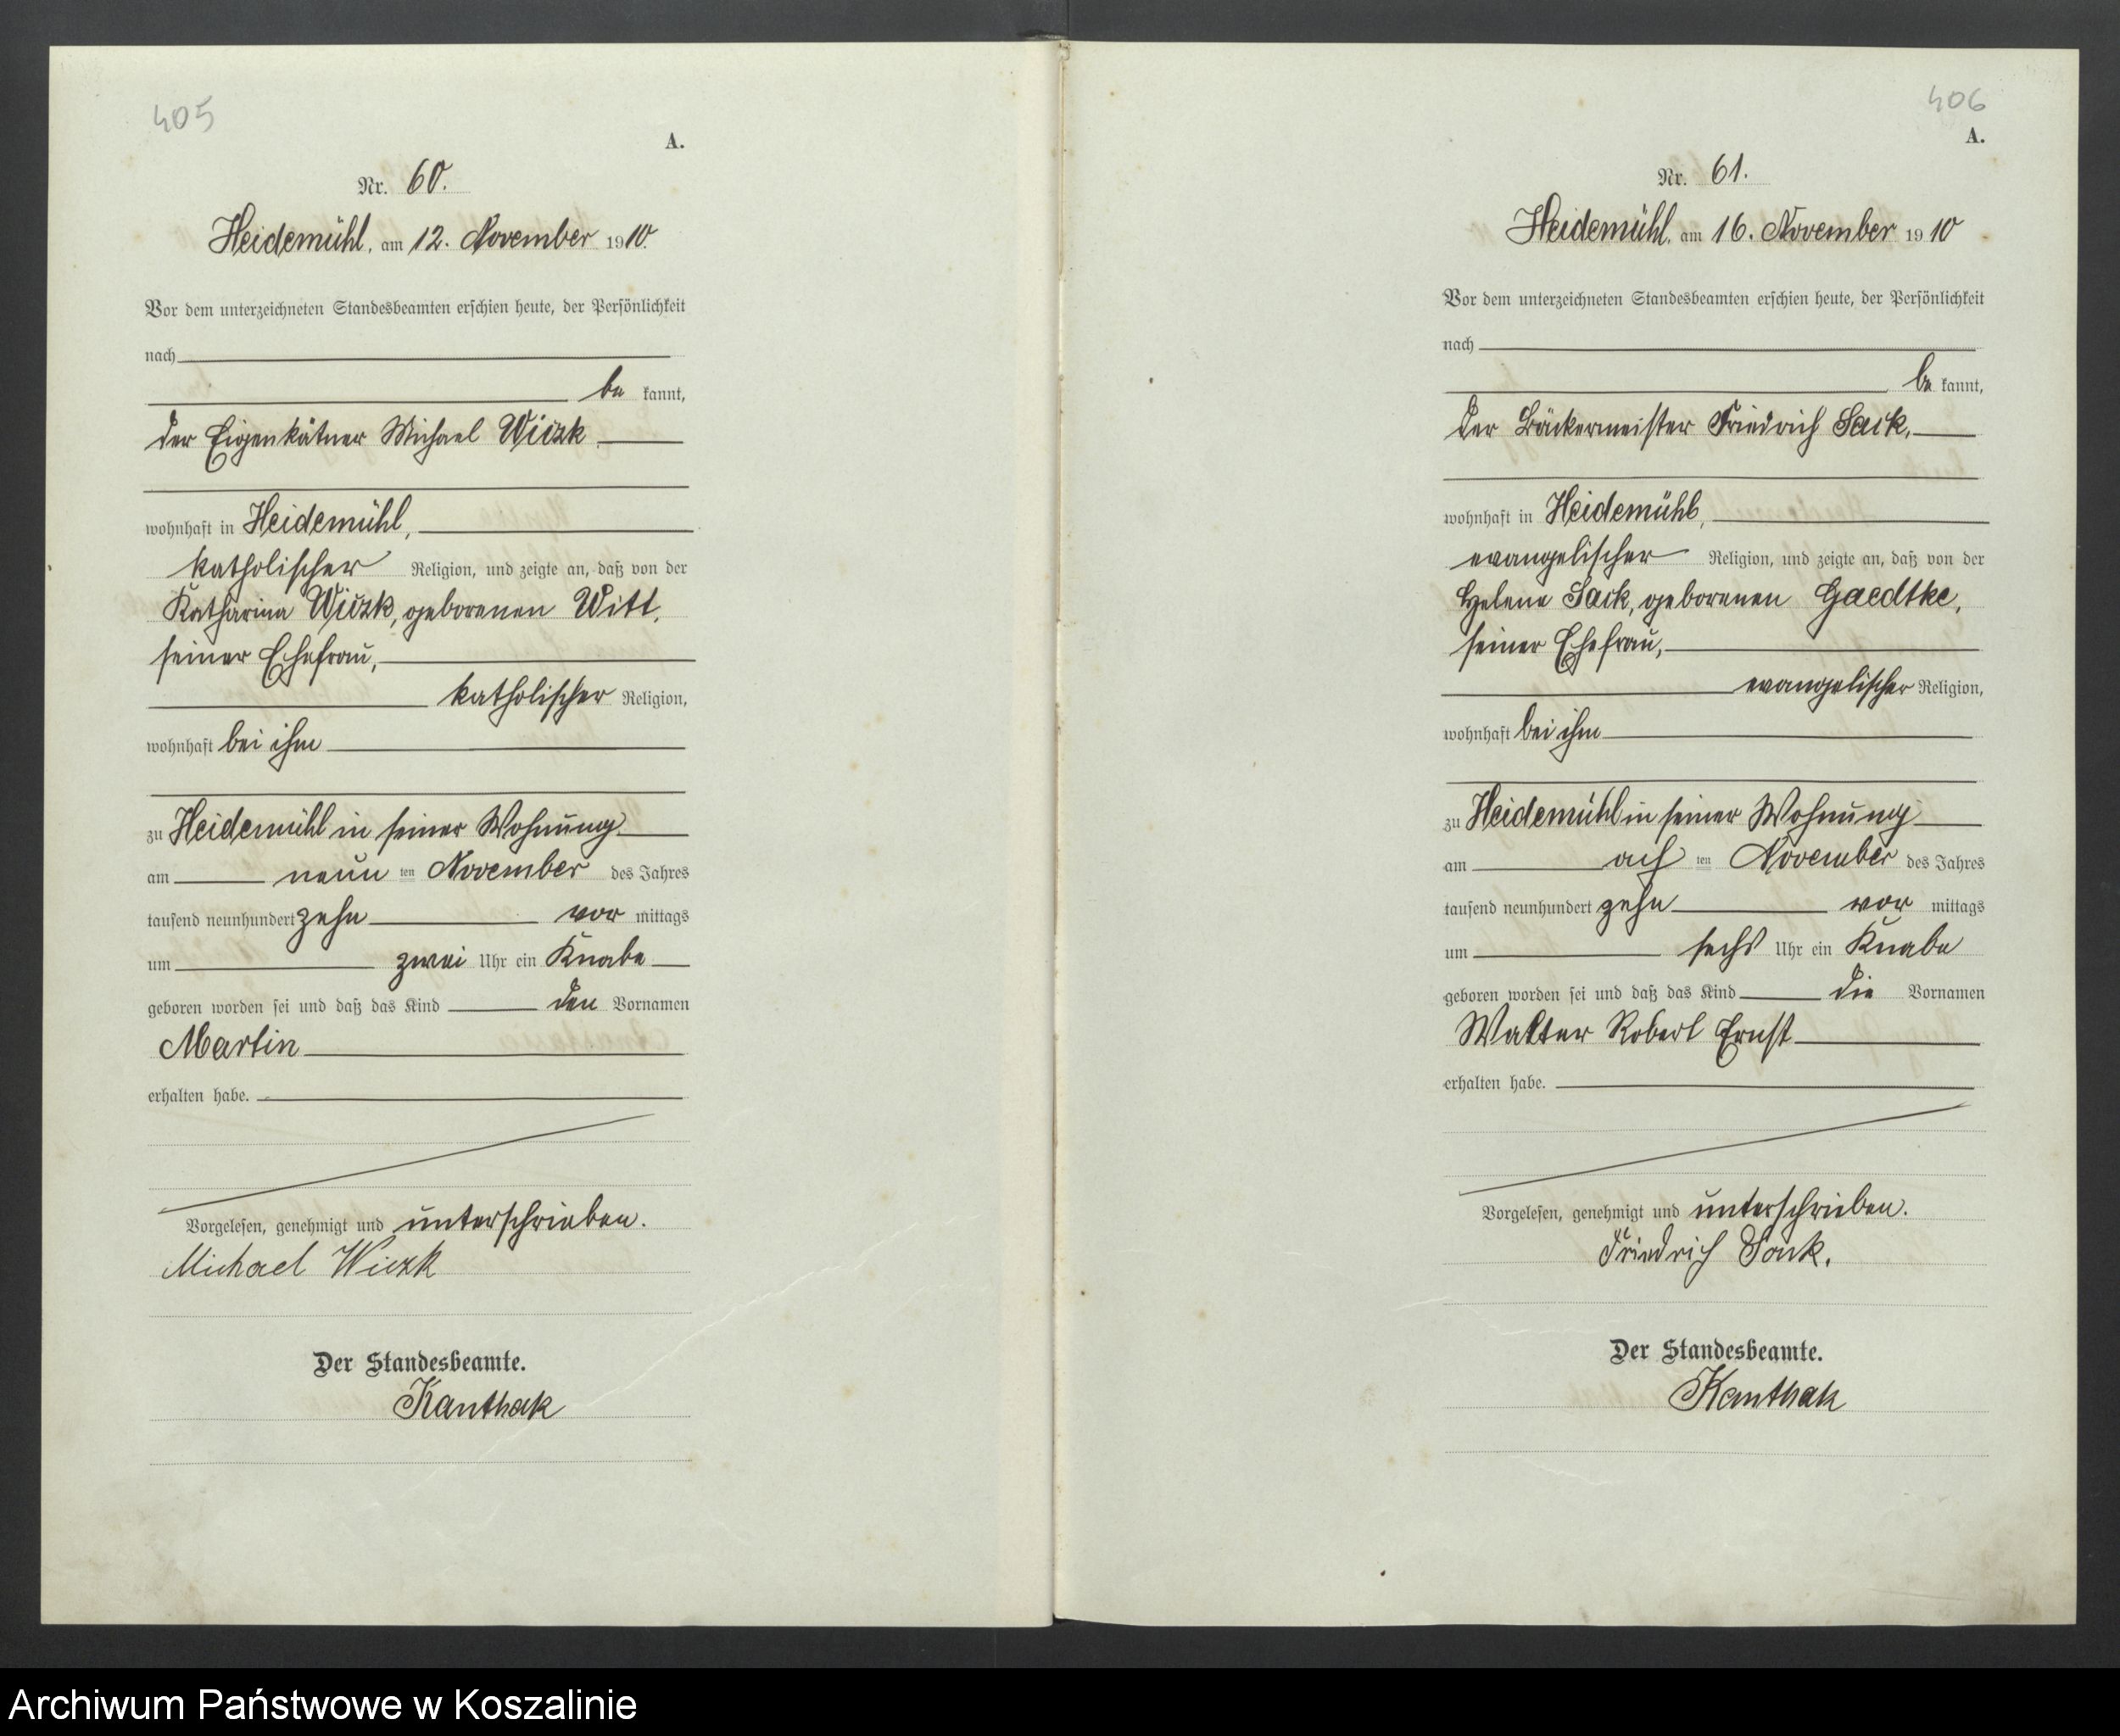 405
A.
Nr. 60.
Heidemühl, am 12. November 1910.
Vor dem unterzeichneten Standesbeamten erschien heute, der Persönlichkeit
nach
be kannt,
der Eigenkätner Michael Wiczk
wohnhaft in Heidemühl,
katholischer Religion, und zeigte an, daß von der
Katharina Wiczk, geborenen Witt,
seiner Ehefrau,
katholischer Religion,
wohnhaft bei ihm
zu Heidemühl in seiner Wohnung
am neun ten November des Jahres
tausend neunhundert zehn vor mittags
um zwei Uhr ein Knabe
geboren worden sei und daß das Kind den Vornamen
Martin
erhalten habe.
Vorgelesen, genehmigt und unterschrieben.
Michael Wiczk
Der Standesbeamte.
Kanthak
406
A.
Nr. 61.
Heidemühl, am 16. November 1910
Vor dem unterzeichneten Standesbeamten erschien heute, der Persönlichkeit
nach
be kannt,
der Bäckermeister Friedrich Sack,
wohnhaft in Heidemühl,
evangelischer Religion, und zeigte an, daß von der
Helene Sack, geborenen Gaedtke,
seiner Ehefrau,
evangelischer Religion,
wohnhaft bei ihm
zu Heidemühl in seiner Wohnung
am ach ten November des Jahres
tausend neunhundert zehn vor mittags
um sechs Uhr ein Knabe
geboren worden sei und daß das Kind die Vornamen
Walter Robert Ernst
erhalten habe.
Vorgelesen, genehmigt und unterschrieben.
Friedrich Sack.
Der Standesbeamte.
Kanthak
Archiwum Państwowe w Koszalinie